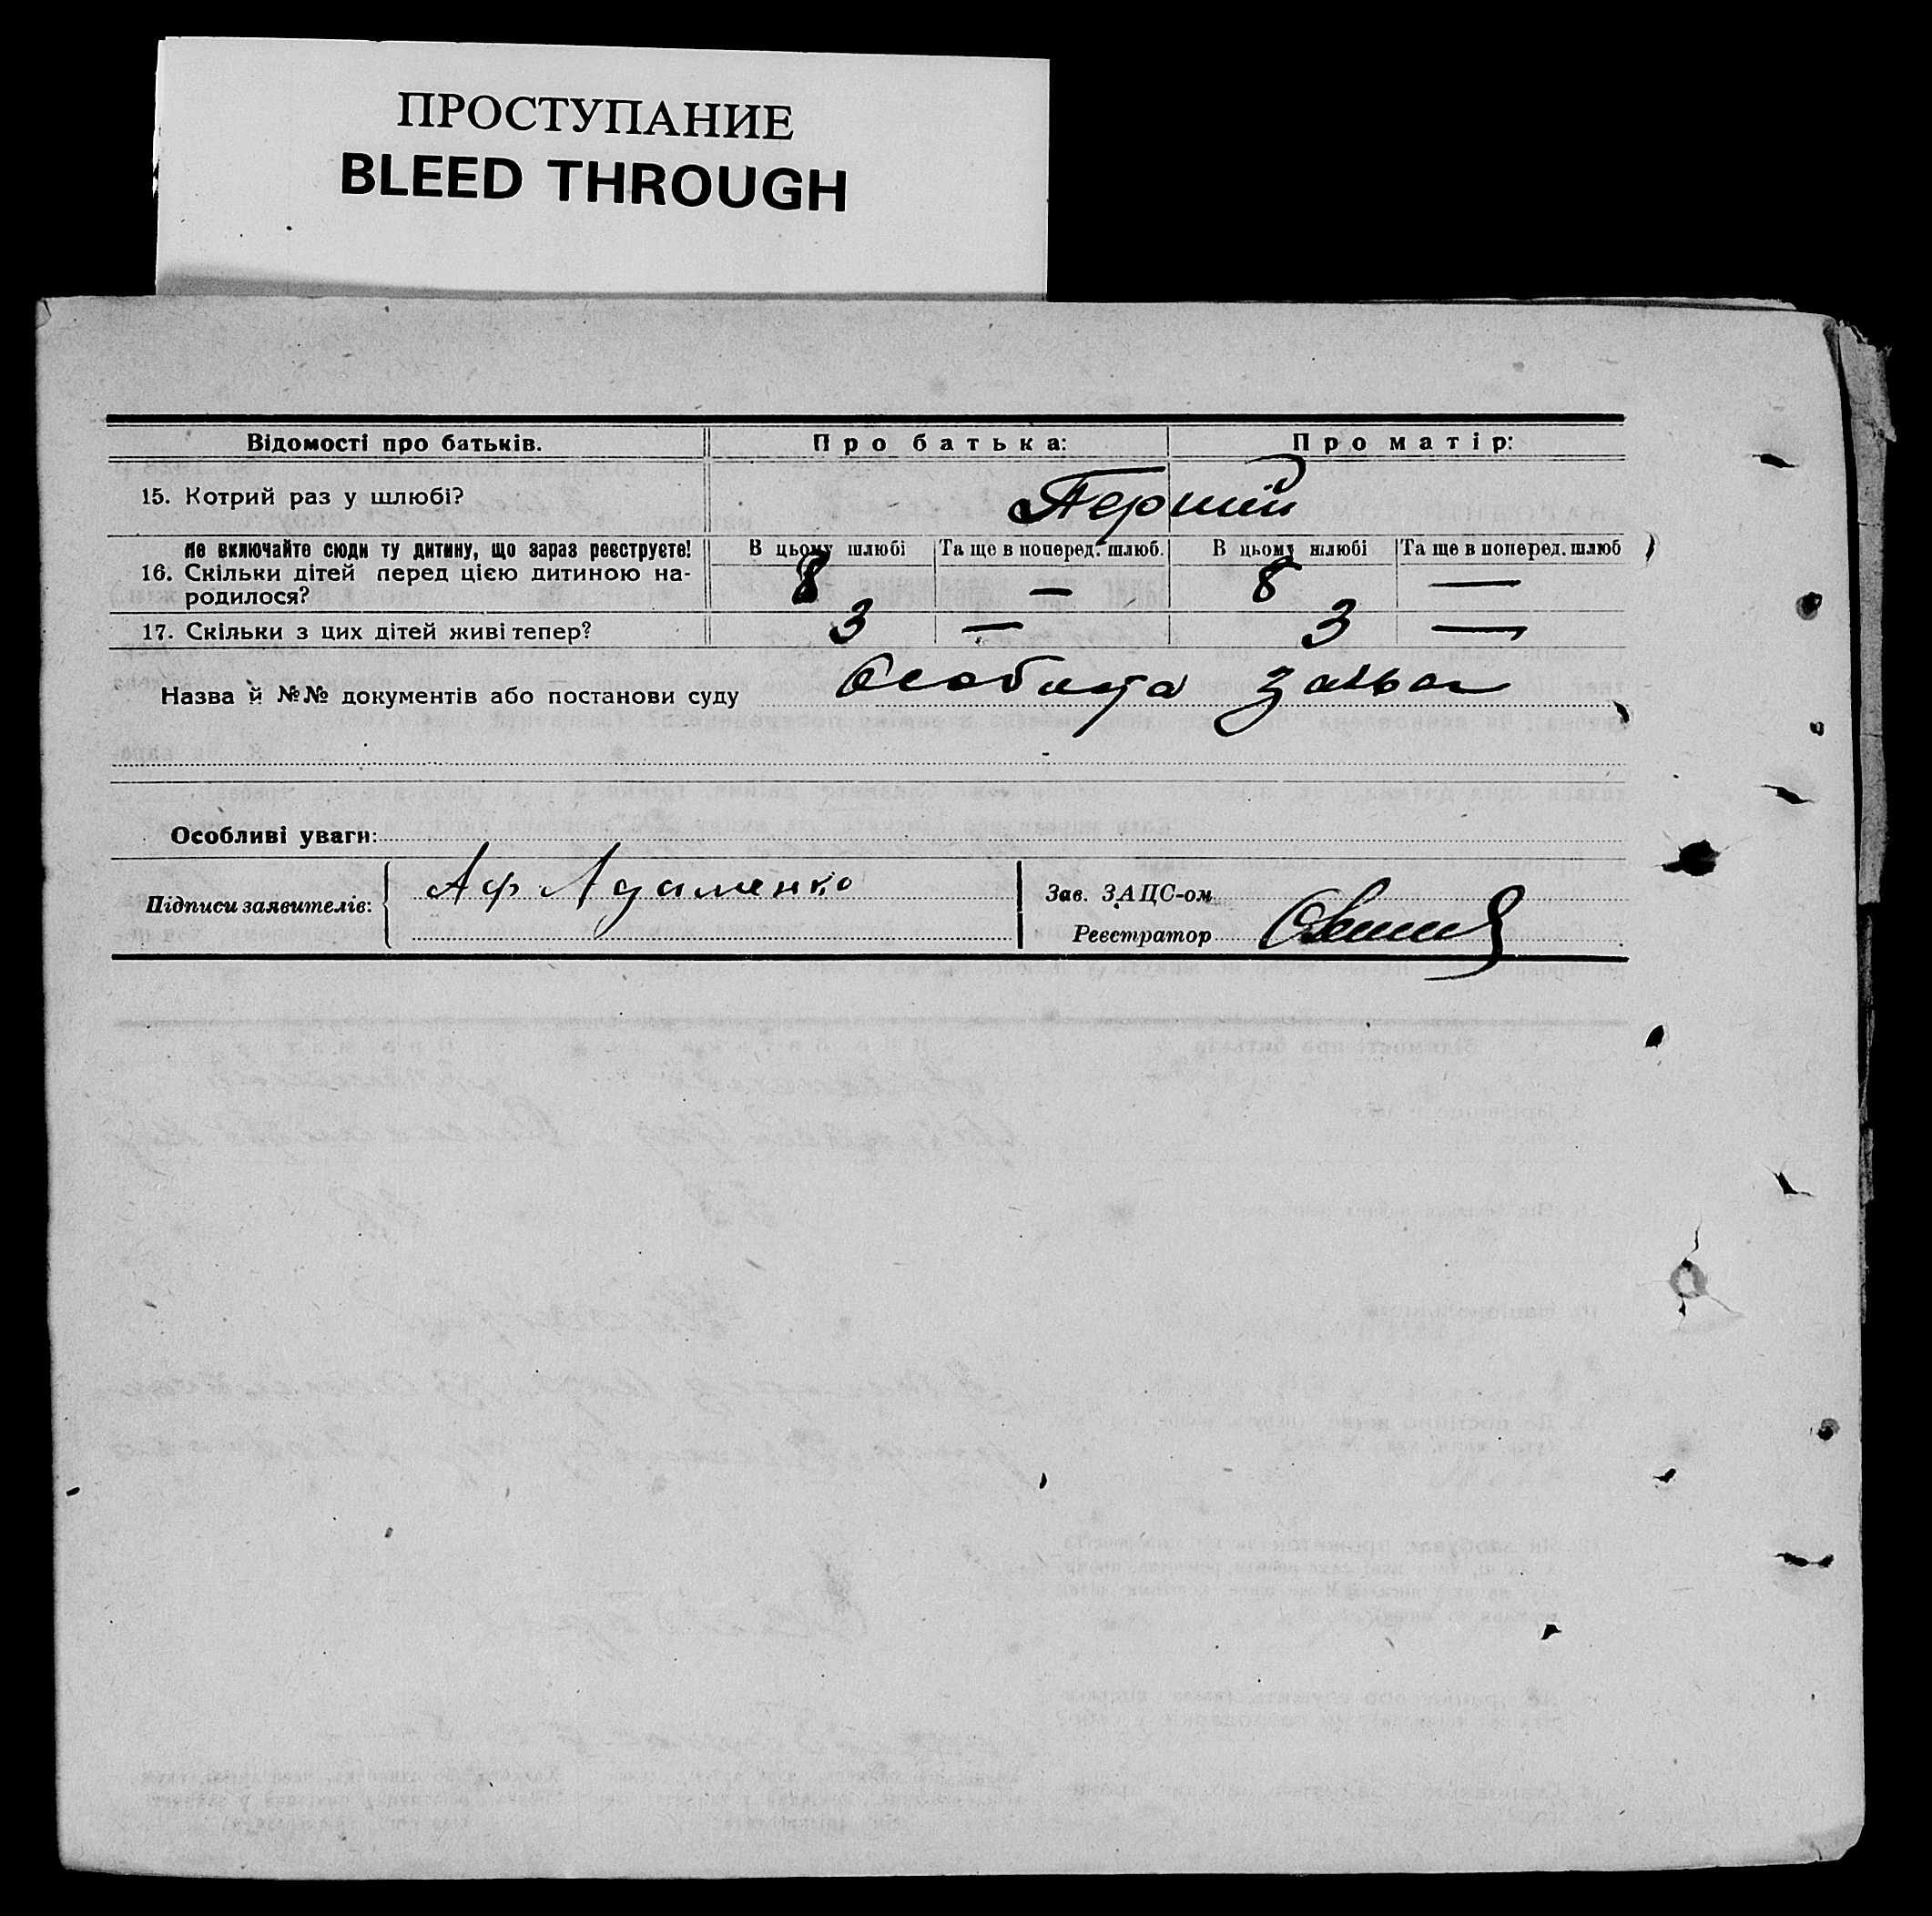 ПРОСТУПАНИЕ
BLEED THROUGH
Відомості про батьків. Про батька: Про матір:
15. Котрий раз у шлюбі? Перший
Не включайте сюди ту дитину, що зараз реєструєте! В цьому шлюбі Та ще в поперед. шлюб. В цьому шлюбі Та ще в поперед. шлюб
16. Скільки дітей перед цією дитиною на- 8 — 8 —
родилося?
17. Скільки з цих дітей живі тепер? 3 — 3 —
Назва й №№ документів або постанови суду Особиста заява
Особливі уваги:
Підписи заявителів: Аф Адаменко Зав. ЗАЦС-ом
Реєстратор